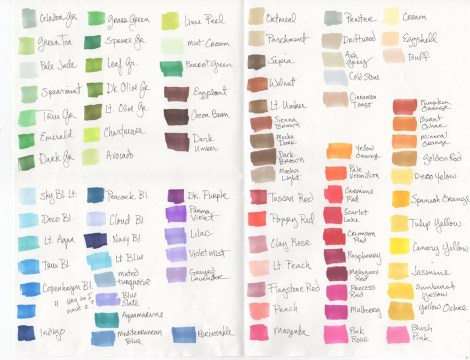 Celadon Gr.
Green Tea
Pale Jade
Spearmint
True Gr
Emerald
Dark Gr
Grass Green
Spruce Gr
Leaf Gr
Dk Olive Gr
Lt. Olive Gr
Chartreuse
Avocado
Lime Peel
Mint Cream
Parrot Green
Eggplant
Cocoa Bean
Dark Umber
Oatmeal
Parchment
Sepia
Walnut
Lt. Umber
Sienna Brown
Mocha Dark
Dark Brown
Mocha Light
Pewter
Driftwood
Ash Gray
Cold Stone
Cinnamon Toast
Cream
Eggshell
Buff
Pumpkin Orange
Burnt Ochre
Mineral Orange
Golden Rod
Deco Yellow
Spanish Orange
Tulip Yellow
Canary Yellow
Jasmine
Sunburst Yellow
Yellow Ochre
Blush Pink
Yellow Orange
Pale Vermilion
Carmine Red
Scarlet Lake
Crimson Red
Raspberry
Mahogany Red
Process Red
Mulberry
Pink Rose
Tuscan Red
Poppy Red
Clay Rose
Lt. Peach
Flagstone Red
Peach
Magenta
Sky Bl. Lt.
Deco Bl
Lt. Aqua
True Bl
Copenhagen Bl
Indigo
Peacock Bl
Cloud Bl
Navy Bl
Lt Blue
muted turquoise
Blue Slate
Aquamarine
Mediterranean Blue
Dk. Purple
Parma Violet
Lilac
Violet Mist
Greyed Lavender
Periwinkle